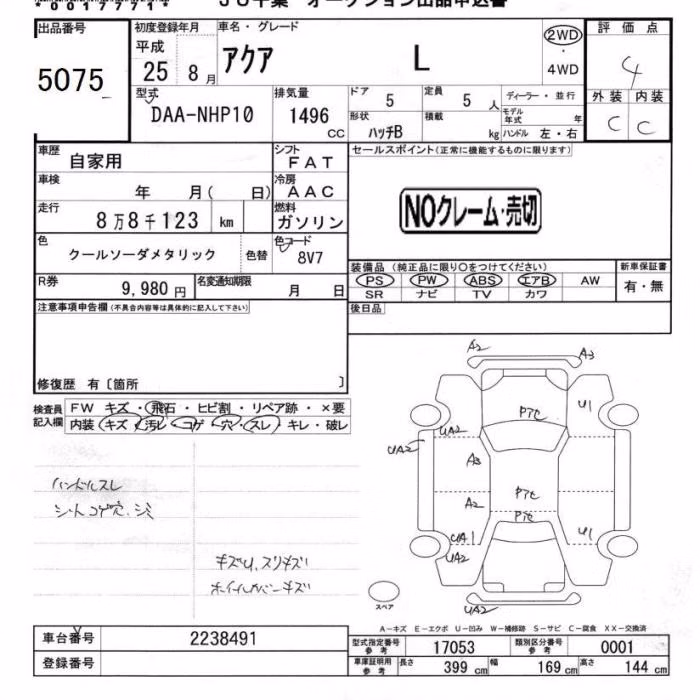 *0017771*
JU千葉 オークション出品申込書
出品番号
5075
初度登録年月
平成
25年 8月
車名・グレード
アクア L
2WD
・
4WD
評価点
4
外装 内装
C C
型式
DAA-NHP10
排気量
1496 CC
ドア 5
定員 5人
ディーラー・並行
形状 ハッチB
積載 kg
モデル年式 年
ハンドル 左・右
車歴
自家用
シフト
FAT
車検
年 月( 日)
冷房
AAC
走行
8万8千123 km
燃料
ガソリン
色
クールソーダメタリック
色替
色コード
8V7
R券
9,980円
名変通知期限
月 日
セールスポイント(正常に機能するものに限ります)
NOクレーム・売切
装備品(純正品に限り○をつけてください)
PS PW ABS エアB AW
SR ナビ TV カワ
新車保証書
有・無
後日品
注意事項申告欄(不具合内容等は具体的に記入して下さい)
修復歴 有〔箇所 〕
検査員記入欄
FW キズ・飛石・ヒビ割・リペア跡・×要
内装 キズ・汚レ・コゲ・穴・スレ・キレ・破レ
ハンドルスレ
シートコゲ穴、シミ
キズU、スリキズ
ホイールカバーキズ
A2
A3
Pケセ
U1
UA2
UA2
A3
Pケセ
A2
Pケセ
UA1
UA2
U1
UA2
スペア
A－キズ E－エクボ U－凹み W－補修跡 S－サビ C－腐食 XX－交換済
車台番号
2238491
登録番号
型式指定番号 参考
17053
類別区分番号 参考
0001
車庫証明用 参考
長さ 399 cm
幅 169 cm
高さ 144 cm